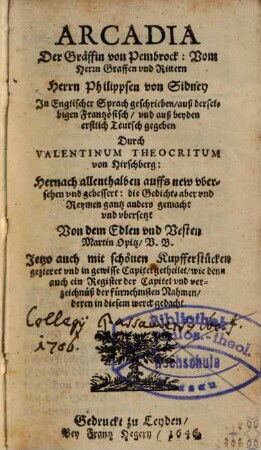 ARCADIA
Der Gräffin von Pembrock: Vom
Herrn Graffen vnd Rittern
Herrn Philippsen von Sidney
In Englischer Sprach geschrieben/ auß dersel-
bigen Frantzösisch/ vnd auß beyden
erstlich Teutsch gegeben
Durch
VALENTINUM THEOCRITUM
von Hirschberg:
Hernach allenthalben auffs new vber-
sehen vnd gebessert: die Gedichte aber vnd
Reymen gantz anders gemacht
vnd vbersetzt
Von dem Edlen vnd Vesten
Martin Opitz/ V. B.
Jetzo auch mit schönen Kupfferstücken
gezieret vnd in gewisse Capitel getheilet/ wie denn
auch ein Register der Capitel vnd ver-
zeichnüß der fürnehmsten Nahmen/
derer in diesem werck gedacht
Collegij
1706.
Bibliothek
Gedruckt zu Leyden/
Bey Frantz Hegern/